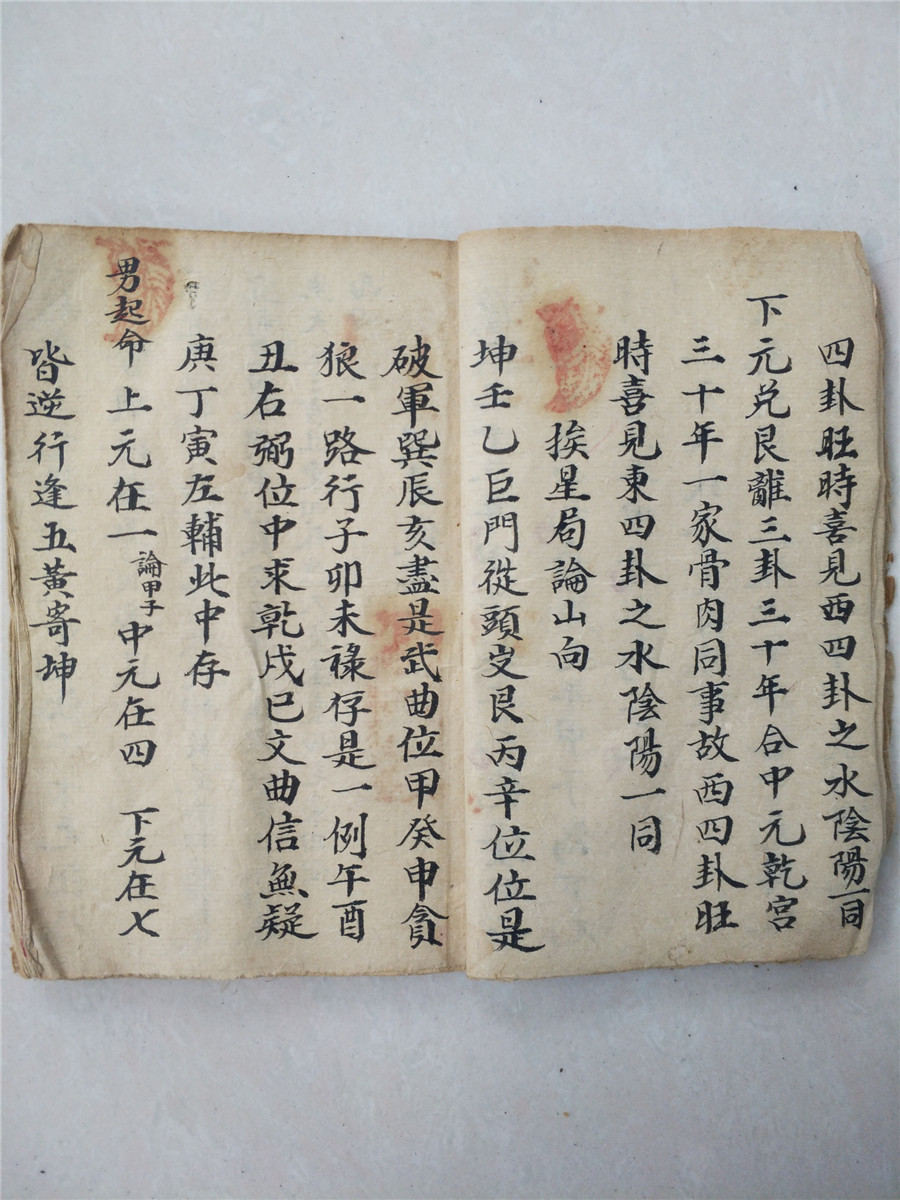 四卦旺時喜見西四卦之水陰陽一同
下元兑艮離三卦三十年合中元乾宮
三十年一家骨肉同事故西四卦旺
時喜見東四卦之水陰陽一同
挨星局論山向
坤壬乙巨門從頭岀艮丙辛位位是
破軍巽辰亥盡是武曲位甲癸申貪
狼一路行子卯未祿存是一例午酉
丑右弼位中求乾戌巳文曲信無疑
庚丁寅左輔此中存
男起命 上元在一論甲子中元在四 下元在七
皆逆行逢五黃寄坤